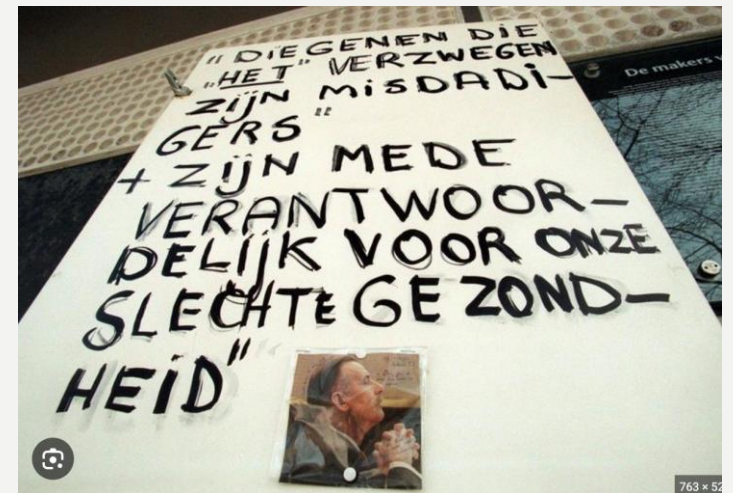 " DIEGENEN DIE
"HET" VERZWEGEN
ZIJN MISDADI-
GERS "
+ ZIJN MEDE
VERANTWOOR-
DELIJK VOOR ONZE
SLECHTE GEZOND-
HEID"
De makers v
763 × 52